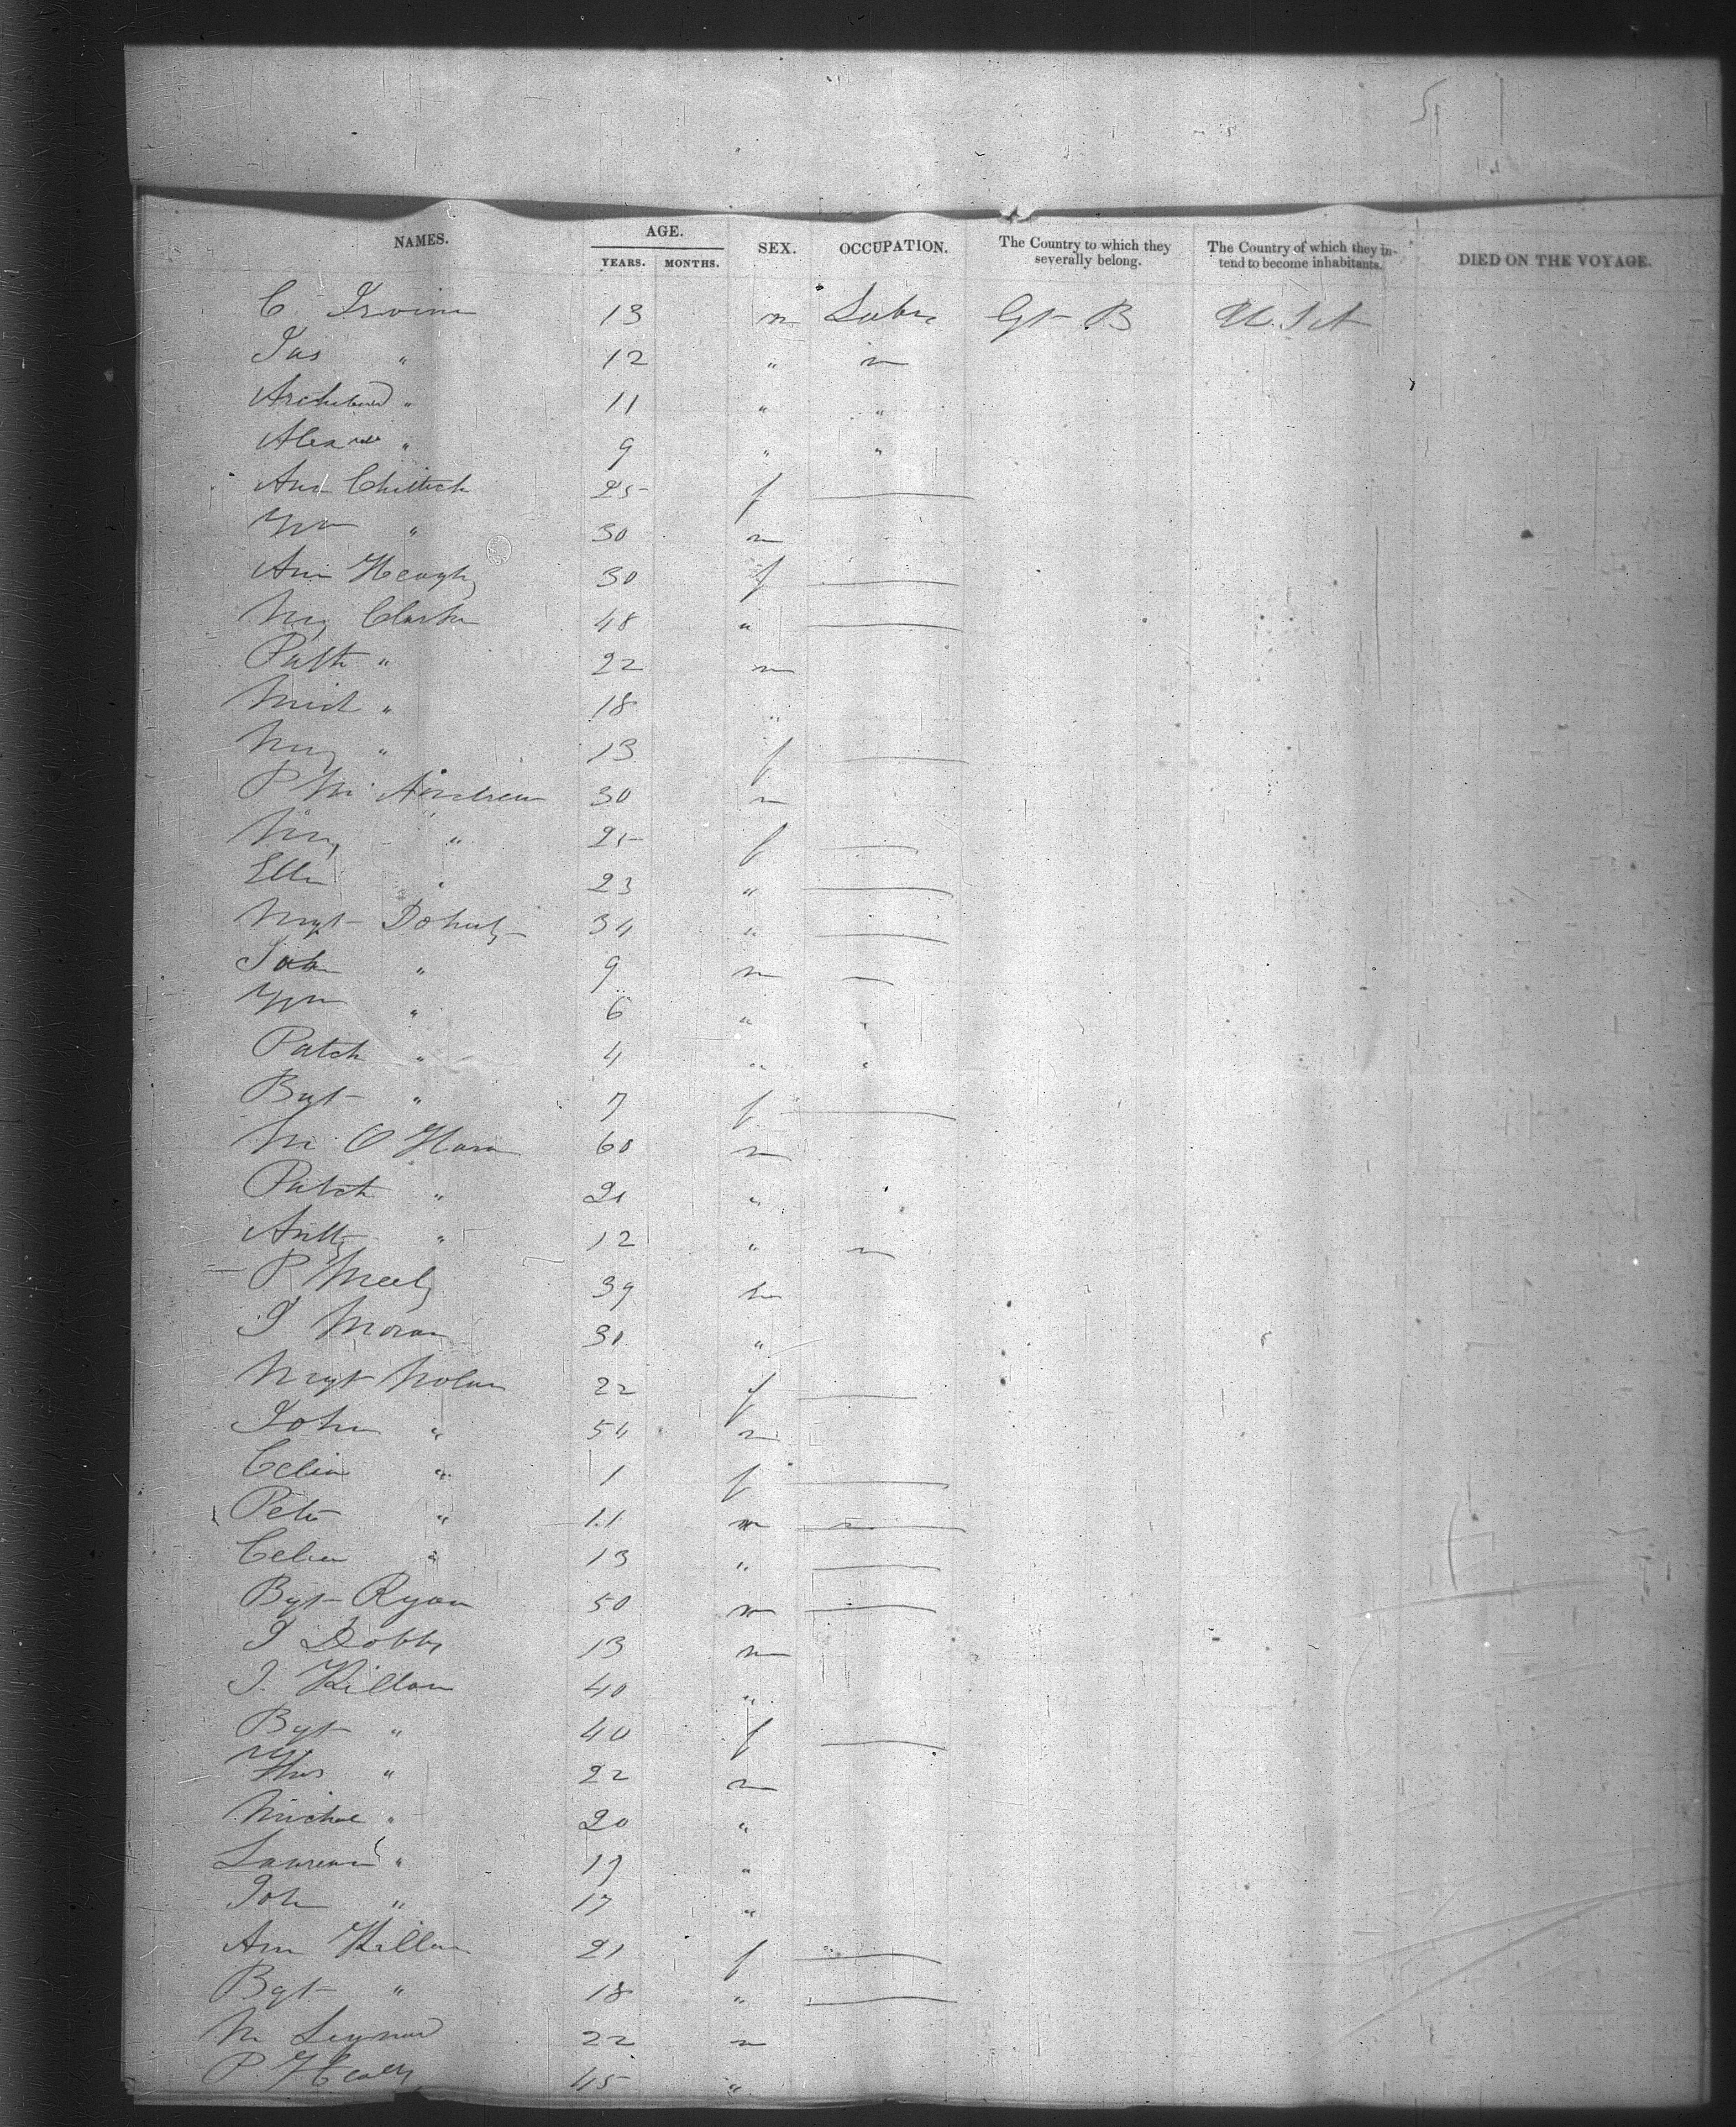 NAMES. AGE. YEARS. MONTHS. SEX. OCCUPATION. The Country to which they severally belong. The Country of which they intend to become inhabitants. DIED ON THE VOYAGE.
C Irvine 13 m Labr Gt B U. St
Jas " 12 " "
Archibald " 11 " "
Alexr " 9 " "
Ann Chittick 25 f
Wm " 30 m
Ann Heaghy 30 f
My Clarke 48 "
Patk " 22 m
Mich " 18 "
My " 13 f
P Mc Andrew 30 m
My " 25 f
Ellen " 23 "
Mgt Dohuty 34 "
John " 9 m
Wm " 6 " "
Patck " 4 " "
Bgt " 7 f
M. O Hara 60 m
Patck " 21 "
Antty " 12 "
P Meely 39 m
J Moran 30 "
Mgt Nolan 22 f
John " 54 m
Celia " 1 f
Peter " 11 m
Celia " 13 "
Bgt Ryan 50 m
J Dobby 13 m
J. Killan 40 "
Bgt " 40 f
Thos " 22 m
Michae " 20 "
Lawrence " 19 "
John " 17 "
Ann Killan 21 f
Bgt " 18 "
M 22 m
P. Healy 45 "